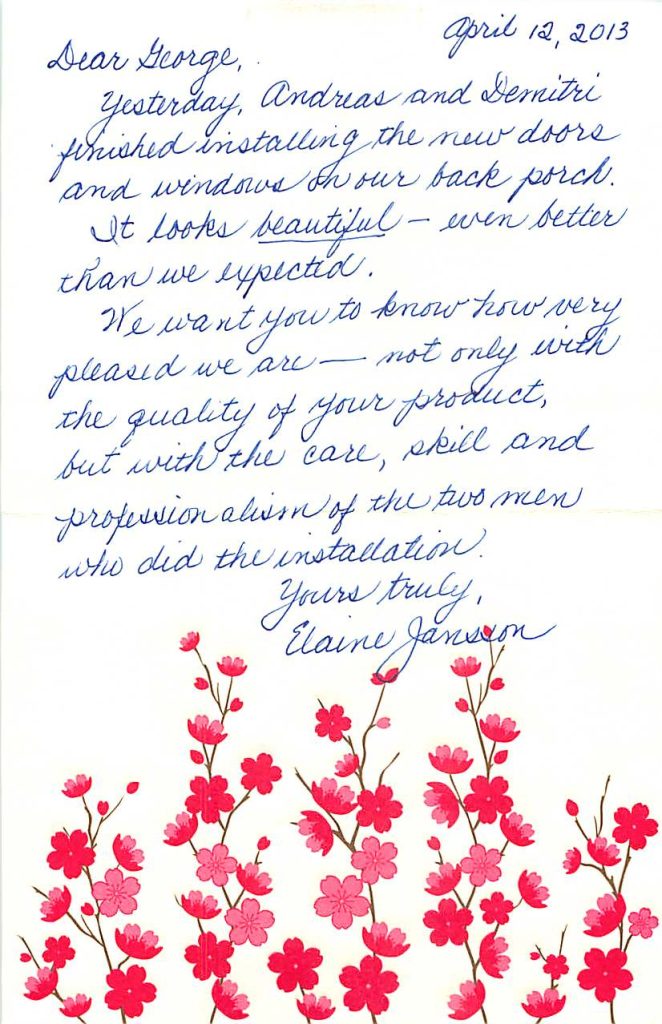 April 12, 2013
Dear George,
Yesterday, Andreas and Demitri
finished installing the new doors
and windows on our back porch.
It looks beautiful – even better
than we expected.
We want you to know how very
pleased we are — not only with
the quality of your product,
but with the care, skill and
professionalism of the two men
who did the installation.
Yours truly,
Elaine Jansson